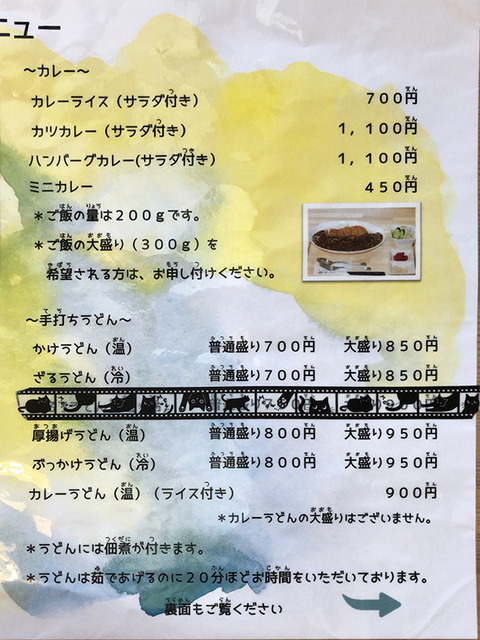 ニュー
～カレー～
カレーライス（サラダ付き） ７００円
カツカレー（サラダ付き） １，１００円
ハンバーグカレー(サラダ付き） １，１００円
ミニカレー ４５０円
＊ご飯の量は２００ｇです。
＊ご飯の大盛り（３００ｇ）を
希望される方は、お申し付けください。
～手打ちうどん～
かけうどん（温） 普通盛り７００円 大盛り８５０円
ざるうどん（冷） 普通盛り７００円 大盛り８５０円
厚揚げうどん（温） 普通盛り８００円 大盛り９５０円
ぶっかけうどん（冷） 普通盛り８００円 大盛り９５０円
カレーうどん（温）（ライス付き） ９００円
＊カレーうどんの大盛りはございません。
＊うどんには佃煮が付きます。
＊うどんは茹であげるのに２０分ほどお時間をいただいております。
裏面もご覧ください